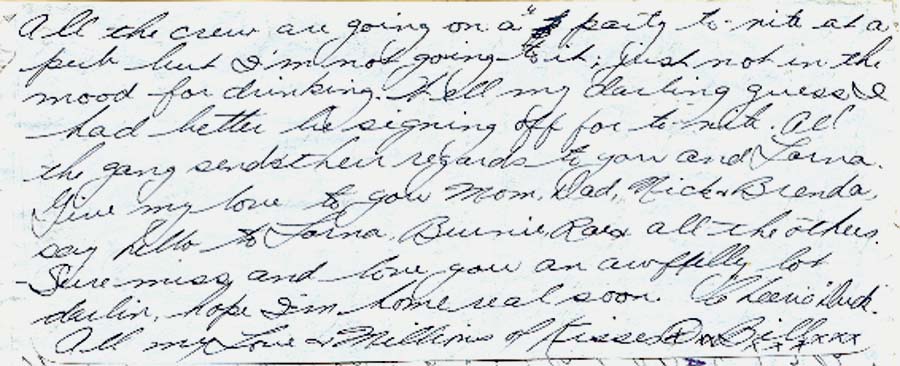 All the crew are going on a party to-nite at a
pub but I'm not going to it, just not in the
mood for drinking. Well my darling guess I
had better be signing off for to-nite. All
the gang sends their regards to you and Lorna.
Give my love to you Mom, Dad, Nick & Brenda,
say hello to Lorna, Burnie, Rae & all the others.
Sure miss and love you an awffully lot
darlin, hope I'm home real soon. Cheerio Duck.
All my Love & Millions of Kisses Bill xxx